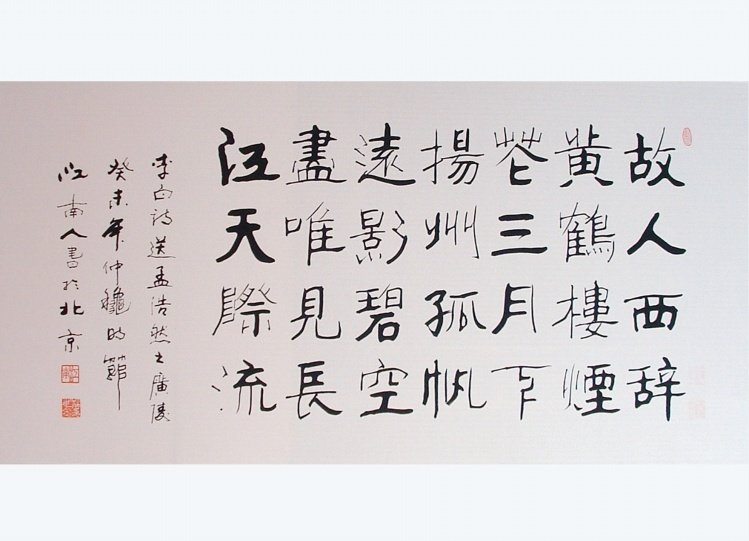 故人西辞
黃鶴樓煙
花三月下
揚州孤帆
遠影碧空
盡唯見長
江天際流
李白詩送孟浩然之廣陵
癸未年仲穐時節
南人書於北京